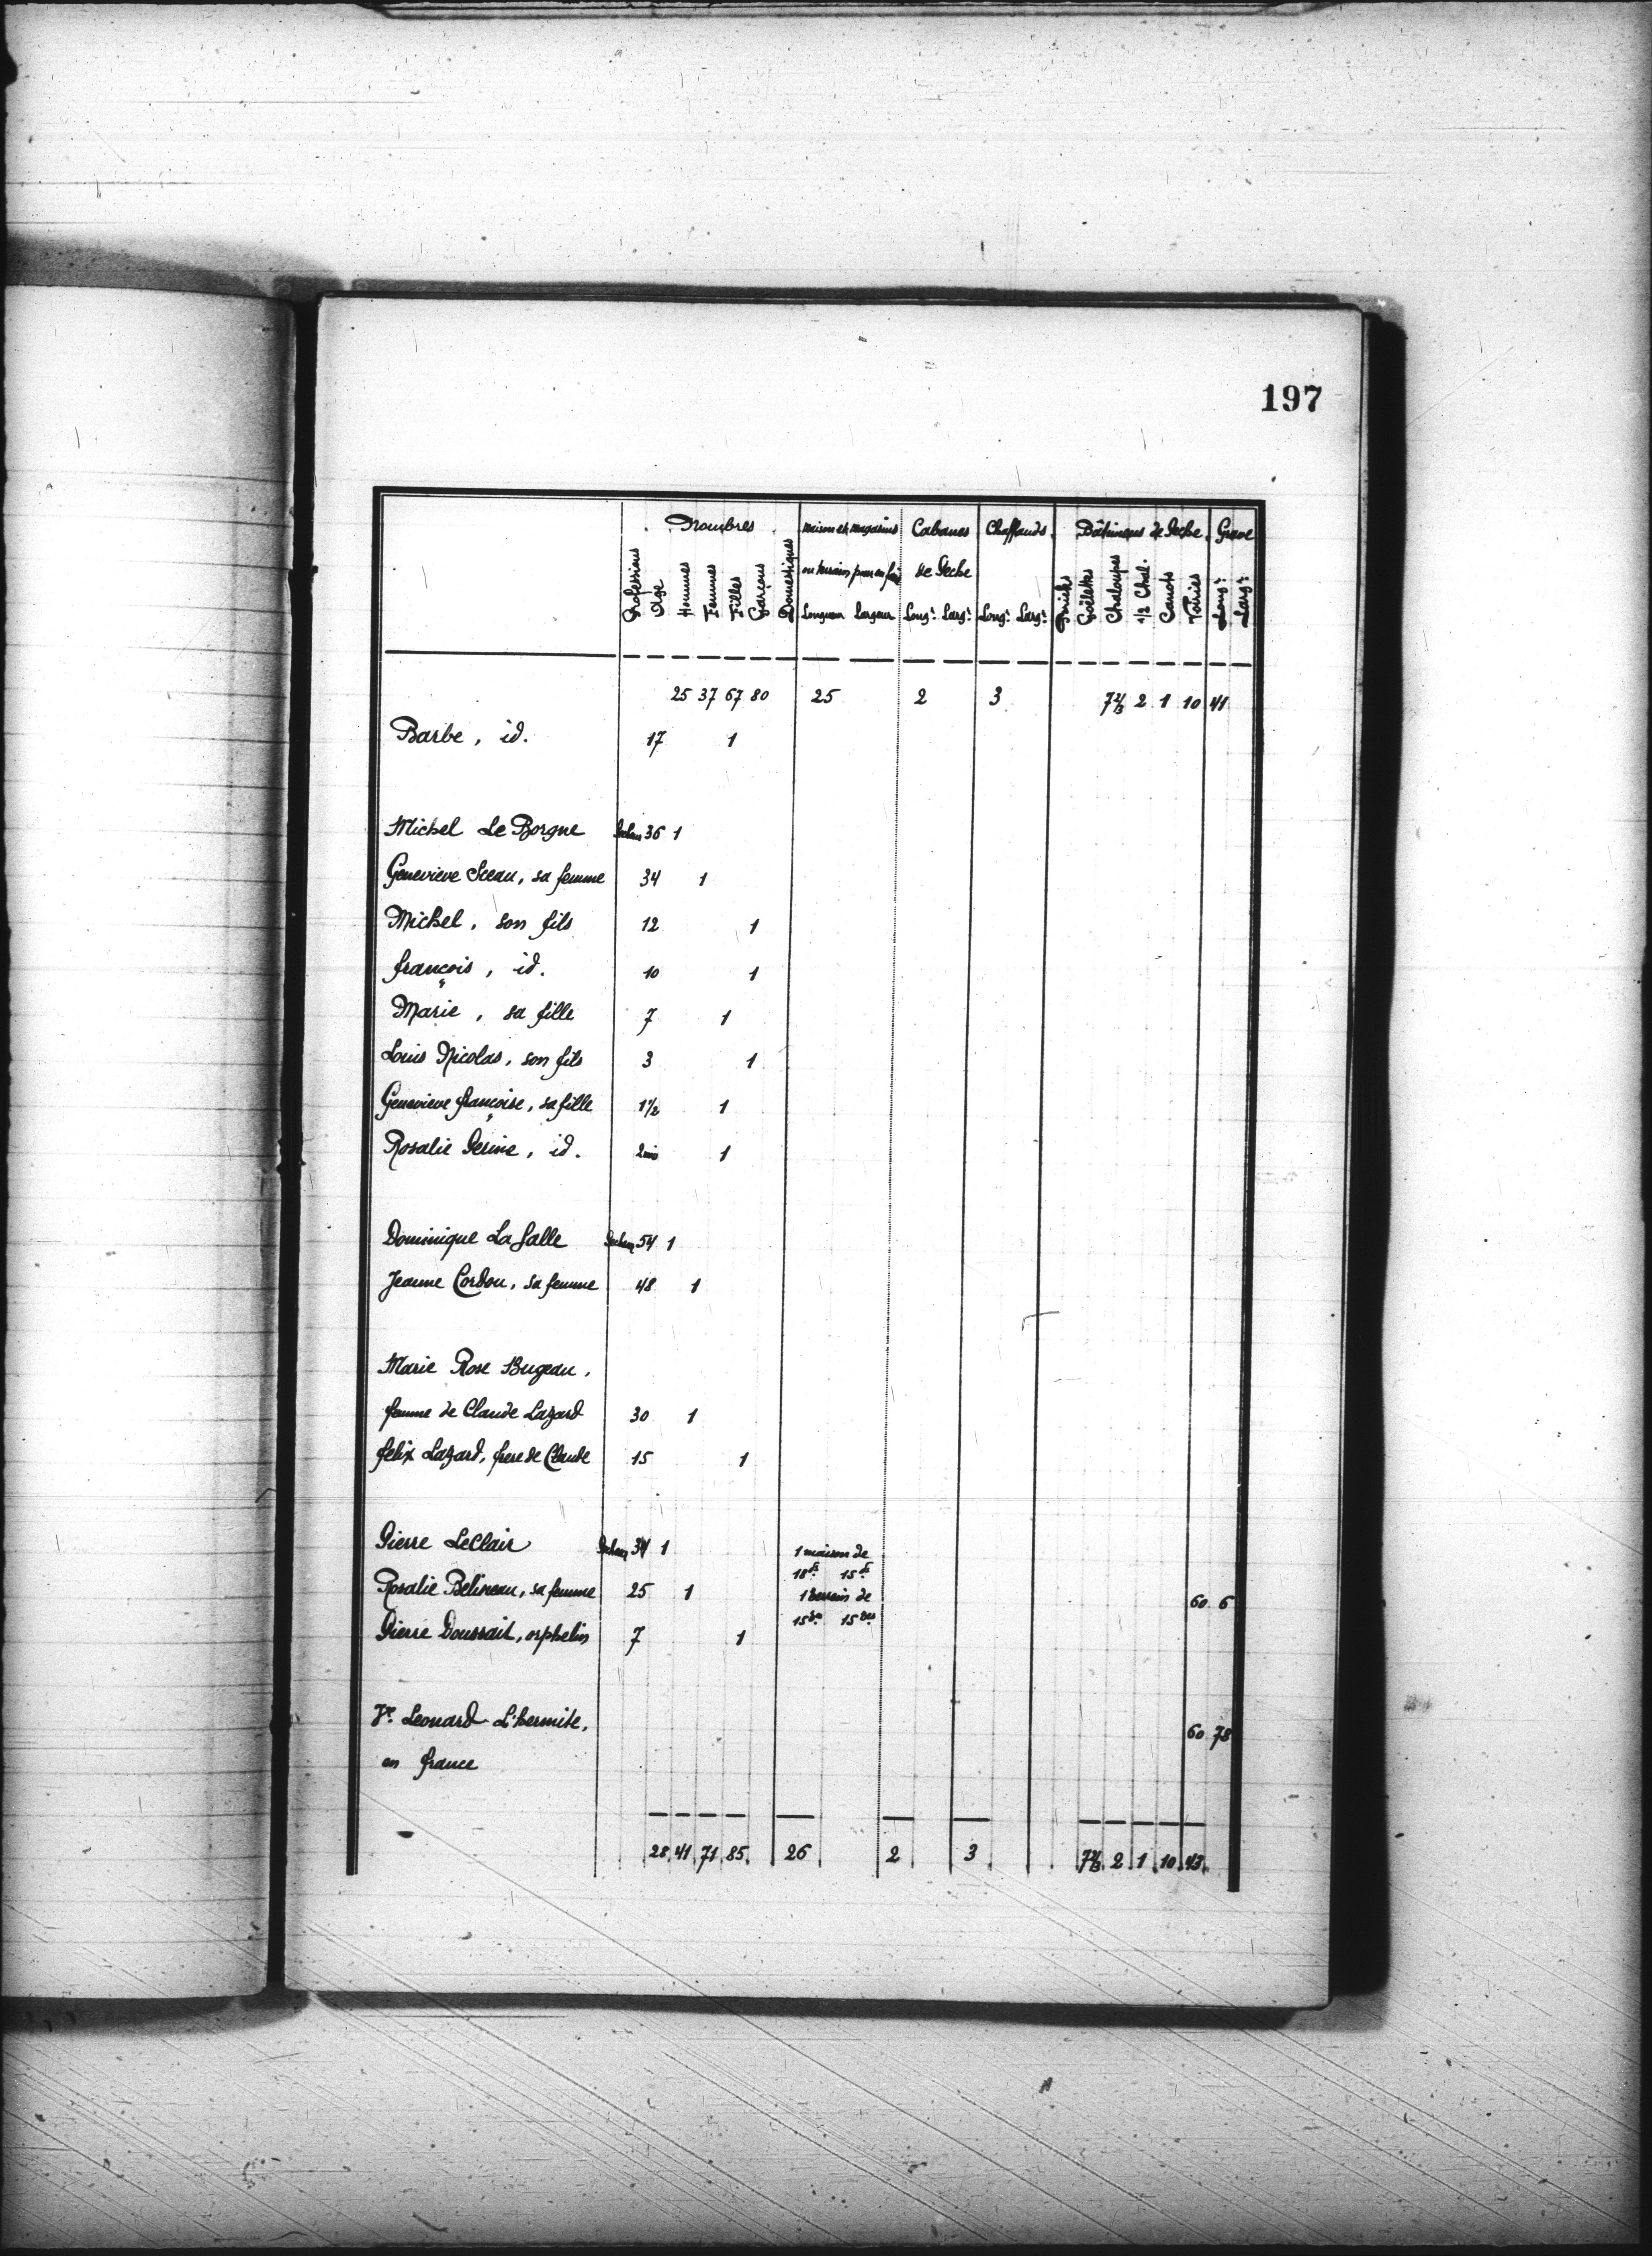 197
Nombres maison et magasins Cabanes Chaffauds Bâtimens de Peche Grave
ou terrain pour en faire de Peche
Professions Age Hommes Femmes Filles Garçons Domestiques Longueur Largeur Longr. Largr. Longr. Largr. Goëlettes Chaloupes 1/2 Chal. Canots Longr. Largr.
25 37 67 80 25 2 3 7 2/3 2 1 10 41
Barbe, id. 17 1
Michel Le Borgne Pecheur 36 1
Genevieve Sceau, sa femme 34 1
Michel, son fils 12 1
françois, id. 10 1
Marie, sa fille 7 1
Louis Nicolas, son fils 3 1
Genevieve françoise, sa fille 1 1/2 1
Rosalie Perine, id. 2 mois 1
Dominique La Salle Pecheur 54 1
Jeanne Cordon, sa femme 48 1
Marie Rose Bugeau,
femme de Claude Lazard 30 1
felix Lazard, frere de Claude 15 1
Pierre LeClair Pecheur 34 1 1 maison de
18 ds. 15 ds.
Rosalie Belineau, sa femme 25 1 1 terrain de 60 6
15 15
Pierre Doussait, orphelin 7 1
Ve. Leonard L'hermite, 60 78
en france
28 41 71 85 26 2 3 7 2/3 2 1 10 43